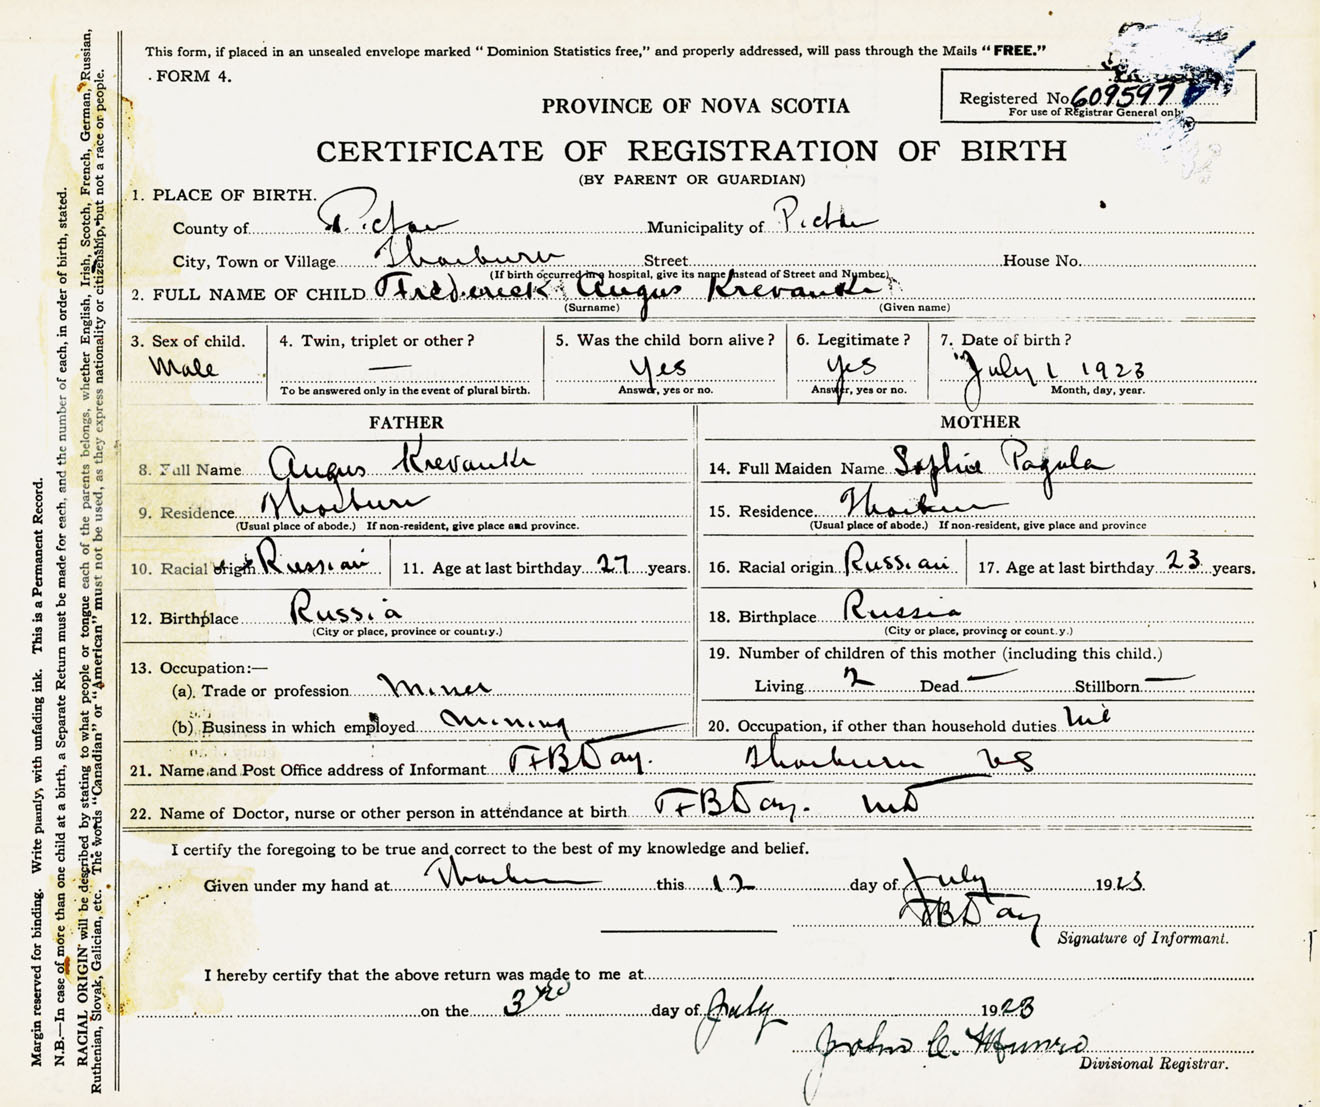 This form, if placed in an unsealed envelope marked "Dominion Statistics free," and properly addressed, will pass through the Mails "FREE."
FORM 4.
Registered No. 609597
For use of Registrar General only.
PROVINCE OF NOVA SCOTIA
CERTIFICATE OF REGISTRATION OF BIRTH
(BY PARENT OR GUARDIAN)
1. PLACE OF BIRTH.
County of Pictou Municipality of Pictou
City, Town or Village Thorburn Street House No.
(If birth occurred in a hospital, give its name instead of Street and Number)
2. FULL NAME OF CHILD Frederick Angus Krevanki
(Surname) (Given name)
3. Sex of child. 4. Twin, triplet or other? 5. Was the child born alive? 6. Legitimate? 7. Date of birth?
Male — Yes Yes July 1 1923
To be answered only in the event of plural birth. Answer, yes or no. Answer, yes or no. Month, day, year.
FATHER MOTHER
8. Full Name Angus Krevanki 14. Full Maiden Name Sophie Pagula
9. Residence Thorburn 15. Residence Thorburn
(Usual place of abode.) If non-resident, give place and province. (Usual place of abode.) If non-resident, give place and province
10. Racial origin Russian 11. Age at last birthday 27 years. 16. Racial origin Russian 17. Age at last birthday 23 years.
12. Birthplace Russia 18. Birthplace Russia
(City or place, province or country.) (City or place, province or country.)
13. Occupation:— 19. Number of children of this mother (including this child.)
(a). Trade or profession Miner Living 2 Dead — Stillborn —
(b) Business in which employed Mining 20. Occupation, if other than household duties
21. Name and Post Office address of Informant F B Day. Thorburn NS
22. Name of Doctor, nurse or other person in attendance at birth F B Day. MD
I certify the foregoing to be true and correct to the best of my knowledge and belief.
Given under my hand at Thorburn this 12 day of July 1923.
F B Day
Signature of Informant.
I hereby certify that the above return was made to me at
on the 3rd day of July 1923
John C. Munro
Divisional Registrar.
Margin reserved for binding. Write plainly, with unfading ink. This is a Permanent Record.
N.B.—In case of more than one child at a birth, a Separate Return must be made for each, and the number of each, in order of birth, stated.
RACIAL ORIGIN will be described by stating to what people or tongue each of the parents belongs, whether English, Irish, Scotch, French, German, Russian,
Ruthenian, Slovak, Galician, etc. The words "Canadian" or "American" must not be used, as they express nationality or citizenship, but not a race or people.